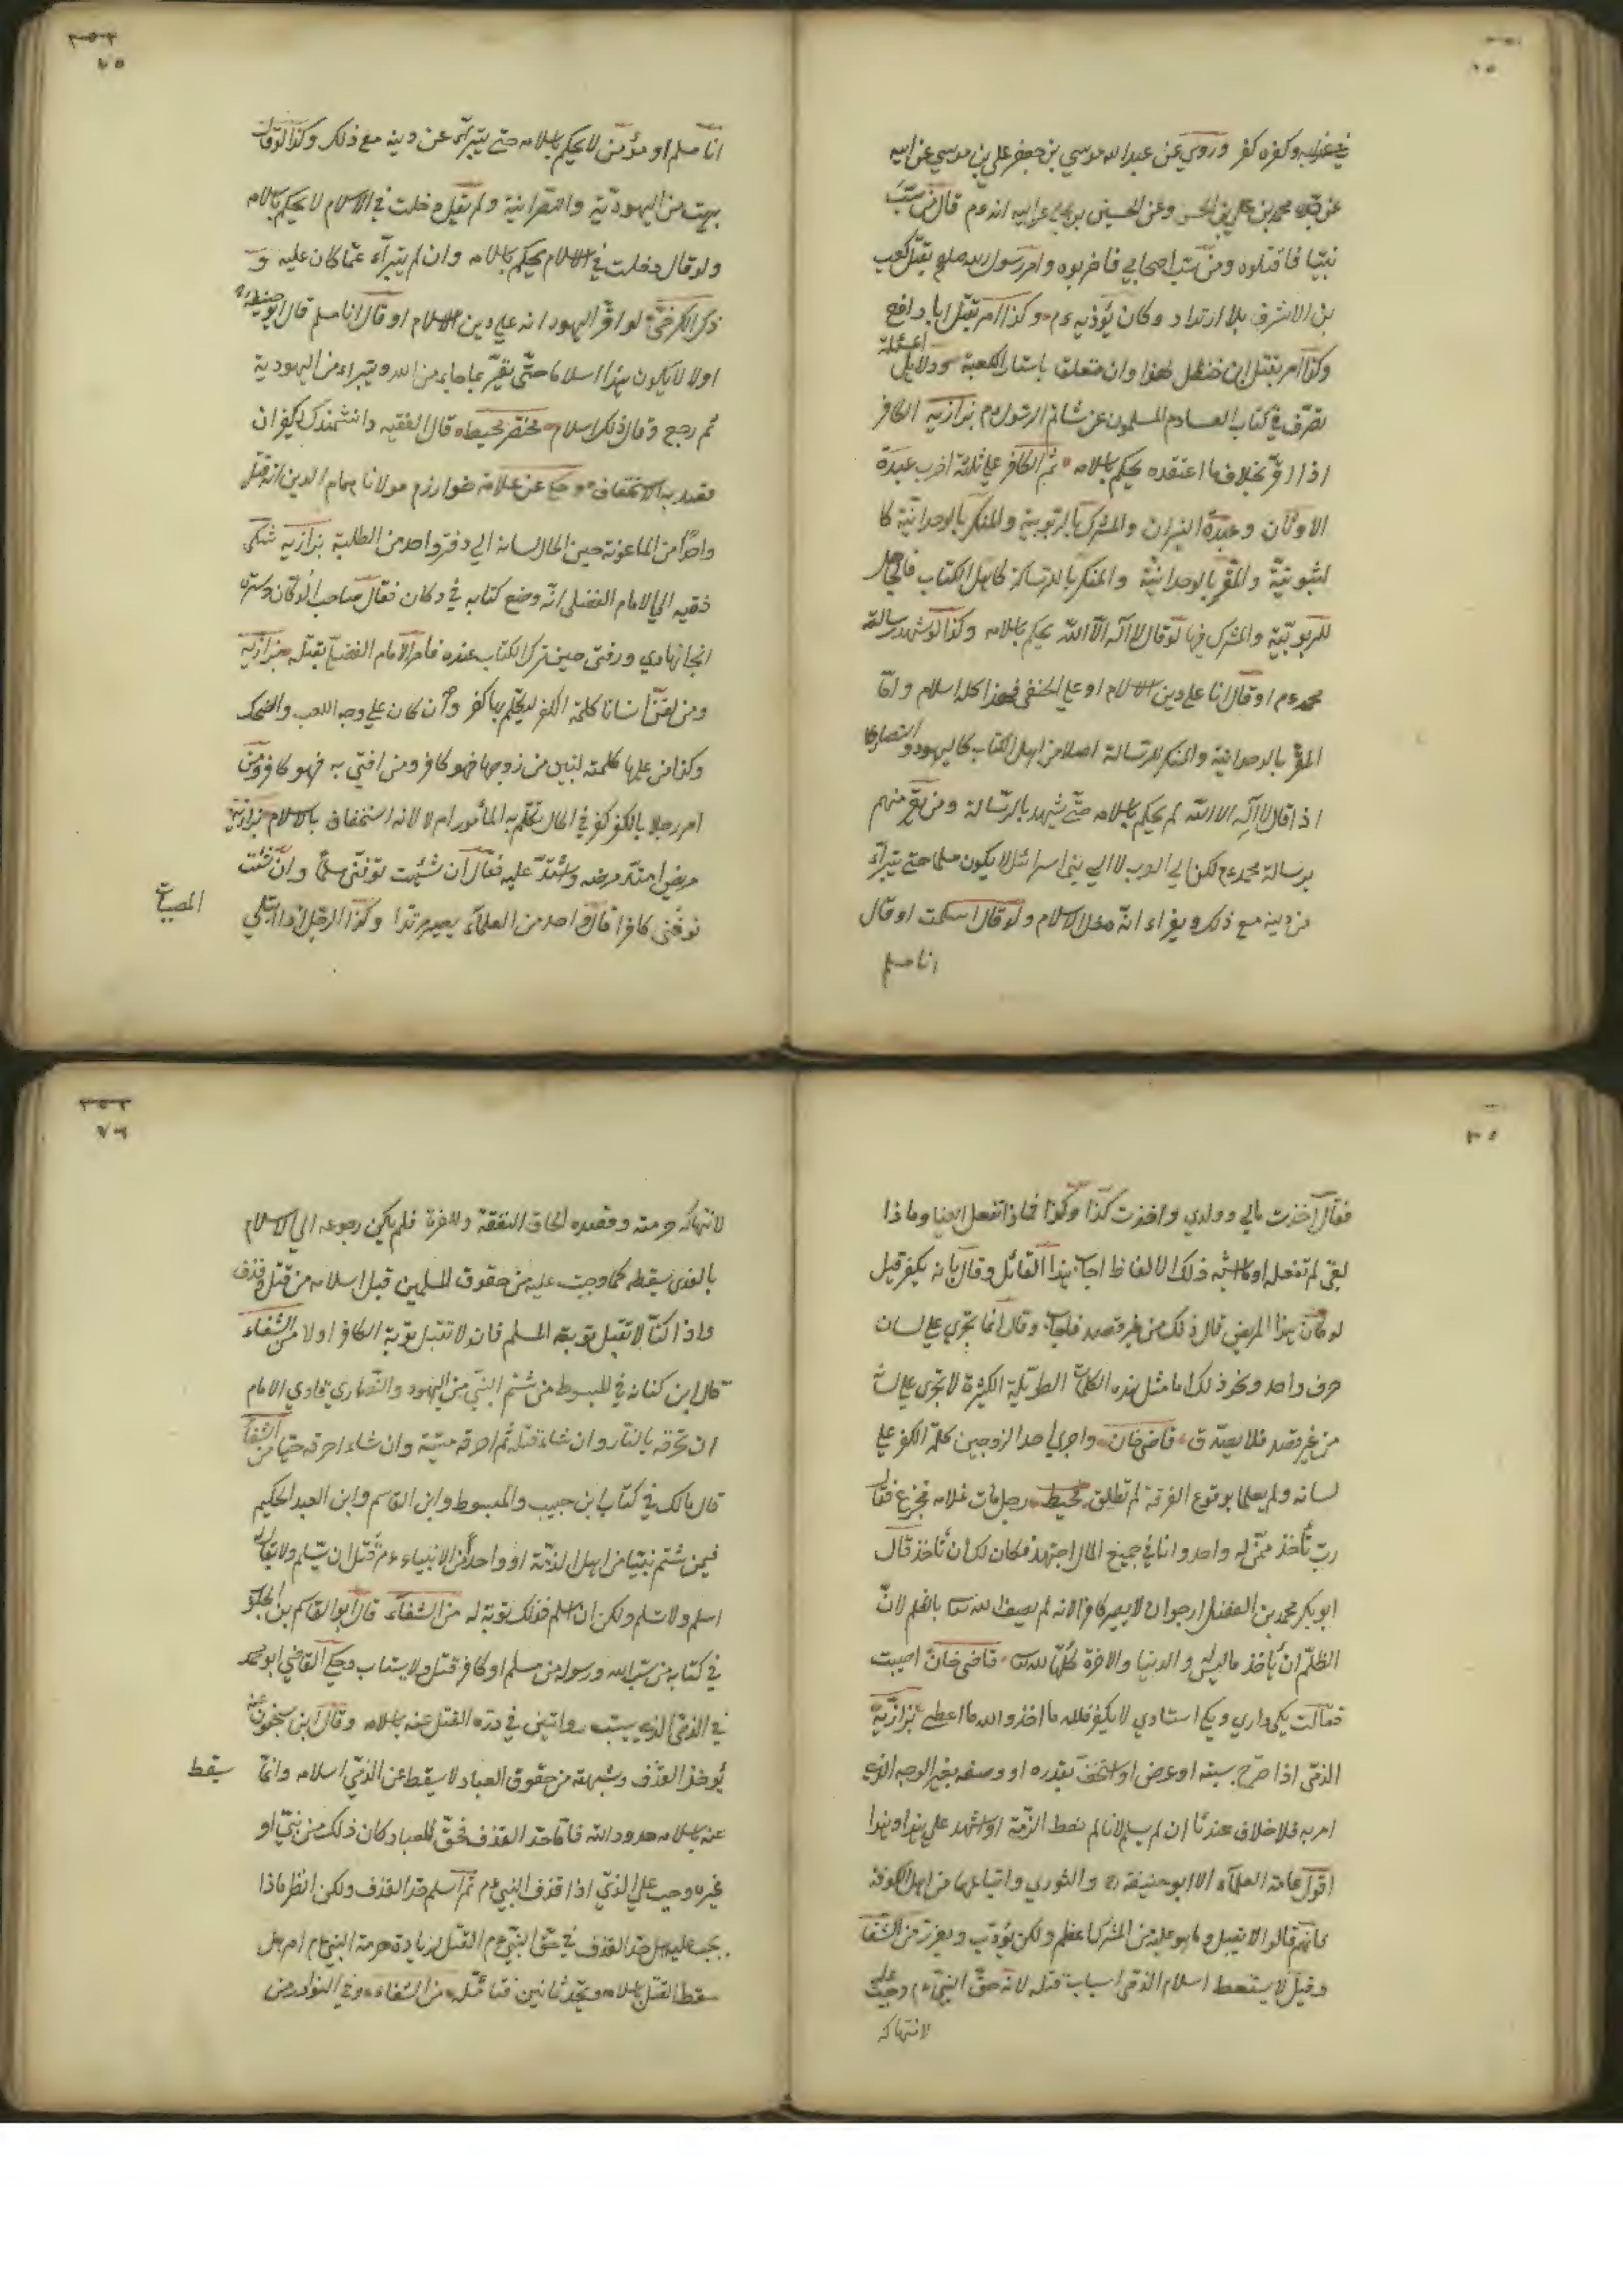 في عذابه وكفره كفر وروي عن عبدالله موسي بن جعفر علي بن موسي عن ابيه
عن جده محمد بن علي بن الحسين وعن الحسين بن علي عن ابيه انه ءم قال من سبّ
نبيّا فاقتلوه ومن سبّ اصحابي فاضربوه وامر رسول الله صلعم بقتل كعب
بن الاشرف بلا ارتداد وكان يؤذيه ءم وكذا امر بقتل ابا رافع
وكذا امر بقتل ابن خنظل لهذا وان متعلق باستار الكعبة ودلايل المسئلة
تعرّف في كتاب الصارم المسلول عن شاتم الرسول ءم بزازيه الكافر
اذا اقرّ بخلاف ما اعتقده يحكم باسلامه ثم الكافر علي ثلثة اضرب عبدة
الاوثان وعبدة النيران والمشرك بالربوبية والمنكر بالوحدانيّة كا
لثنويّة والمقرّ بالوحدانيّة والمنكر بالرسالة كاهل الكتاب فالجاحد
للربوبيّة والمشرك فيها لو قال لا اله الاّ الله يحكم باسلامه وكذا لو شهد برسالة
محمد ءم او قال انا علي دين الاسلام او علي الحنفي فهذا كله اسلام وامّا
المقرّ بالوحدانية والمنكر للرسالة اصلا من اهل الكتاب كاليهود والنصاري
اذا قال لا اله الا الله لم يحكم باسلامه حتّي شهد بالرّسالة ومن يقرّ منهم
برسالة محمد ءم لكن الي العرب لا الي بني اسرائل لا يكون مسلما حتي يتبرّأ
من دينه مع ذلك ويقرّ انّه دخل الاسلام ولو قال اسلمت او قال
انا مسلم
انا مسلم او مؤمن لا يحكم باسلامه حتّي يتبرّأ عن دينه مع ذلك وكذا لو قال
برئت من اليهوديّة والنصرانية ولم يقل دخلت في الاسلام لا يحكم باسلامه
ولو قال دخلت في الاسلام يحكم باسلامه وان لم يتبرّأ عمّا كان عليه و
ذكر الكرخيّ لو اقرّ اليهود انه علي دين الاسلام او قال انا مسلم قال ابو حنيفة
اولا لا يكون هذا اسلاما حتّي يقرّ بما جاء من الله ويتبراء من اليهودية
ثم رجع وقال ذلك اسلام مختصر محيط قال لفقيه دانشمندك يكفر ان
قصد به الاستخفاف حكي عن علامة خوارزم مولانا همام الدين انه قتل
واحدًا من الماعونة حين اطال لسانه الي دفتر واحد من الطلبة بزازيه شكي
فقيه الي الامام الفضلي انّه وضع كتابه في دكان فقال صاحب الدكّان
انجا نهادي ورفتي حين ترك الكتاب عنده فامر الامام الفضلي بقتله بزازيه
ومن لقّن انسانا كلمة الكفر ليتكلّم بها كفر وان كان علي وجه اللعب والضحك
وكذا من علمها كلمة لتبين من زوجها فهو كافر ومن افتي به فهو كافر ومن
امر رجلا بالكفر كفر في الحال تكلّم به المأمور ام لا لانه استخفاف بالاسلام بزازيه
مريض امتدّ مرضه واشتدّ عليه فقال ان شئت توفّني مسلمًا وان شئت
توفّني كافرا قال واحد من العلماء يصير مرتدا وكذا الرجل اذا ابتلي
المصيبات
فقال اخذت مالي وولدي واخذت كذا وكذا فماذا تفعل ايضا وماذا
بقي لم تفعله او ما اشبه ذلك الالفاظ اجاب هذا القائل وقال بانه يكفر قيل
لو كان هذا المريض قال ذلك من غير قصد فاجاب وقال انما يجري علي لسان
حرف واحد ونحو ذلك اما مثل هذه الكلمات الطويلة الكثيرة لا تجري علي لسانه
من غير قصد فلا يصدق قاضي خان واجري احد الزوجين كلمة الكفر علي
لسانه ولم يعلما بوقوع الفرقة لم تطلق محيط رجل مات غلامه فجزع فقال
ربّ تأخذ ممّن له واحد وانا في جميع المال اجتهد فكان لك ان تأخذ قال
ابو بكر محمد بن الفضل ارجو ان لا يصير كافرا لانه لم يصف الله تعالي بالظلم لانّ
الظلم ان يأخذ ما ليس له والدنيا والاخرة كلّها لله تعالي قاضي خان اصيبت
فقالت يكي داري ويكي استادي لا يكفر فلله ما اخذ والله ما اعطي بزازيّة
الذمّي اذا صرّح بسبه او عرض او استخفّ بقدره او وصفه بغير الوجه الذي
امر به فلا خلاف عندنا ان لم يسلم لانا لم نعط الذّمة او اشهد علي هذا وهذا
اقول عامة العلماء الا ابو حنيفة والثوري واتباعهما من اهل الكوفة
فانّهم قالوا لا يقتل وما هو عليه من الشرك اعظم ولكن يؤدّب ويعزّر من الشفا
وقيل لا يسقط اسلام الذمّي اسباب قتله لانه حقّ النبيّ ءم وجبت عليه
لانتهاكه
لانتهاكه حرمته وقصده الحاق النقيصة والمعرّة فلم يكن رجوعه الي الاسلام
بالذي يسقطه كما وجبت عليه من حقوق المسلمين قبل اسلامه من قتل وقذف
واذا كنّا لا تقبل توبة المسلم فان لا تقبل توبة الكافر اولا من الشفاء
قال ابن كنانه في المبسوط من شتم النبيّ من اليهود والنّصاري فاري الامام
ان يحرقه بالنّار وان شاء قتله ثم احرقه ميتة وان شاء احرقه حيّا من الشفا
قال مالك في كتاب ابن حبيب والمبسوط وابن القاسم وابن العبد الحكيم
فيمن شتم نبيّنا من اهل الذمّة او واحدًا من الانبياء ءم قتل ان يسلم ولا يقال له
اسلم ولا تسلم ولكن ان اسلم فذلك توبة له من الشفاء قال ابو القاسم بن الجلّاب
في كتابه من سبّ الله ورسوله من مسلم او كافر قتل ولا يستتاب وحكي القاضي ابو محمد
في الذمّي الذي يسبّ روايتين في درء القتل عنه باسلامه وقال ابن سحنون
يؤخذ القذف وشبهه من حقوق العباد لا يسقط عن الذمّي اسلامه وانّما
يسقط
عنه باسلامه حدود الله فامّا حدّ القذف فحقّ للعباد كان ذلك من نبيّ او
غيره وجب علي الذميّ اذا قذف النبي ءم ثمّ اسلم حدّ القذف ولكن انظر ماذا
يجب عليه هل حدّ القذف في حقّ النبيّ ءم القتل لزيادة حرمة النبيّ ءم ام هل
سقط القتل باسلامه ويحدّ ثمانين فتأمّله من الشفاء وفي النوادر من